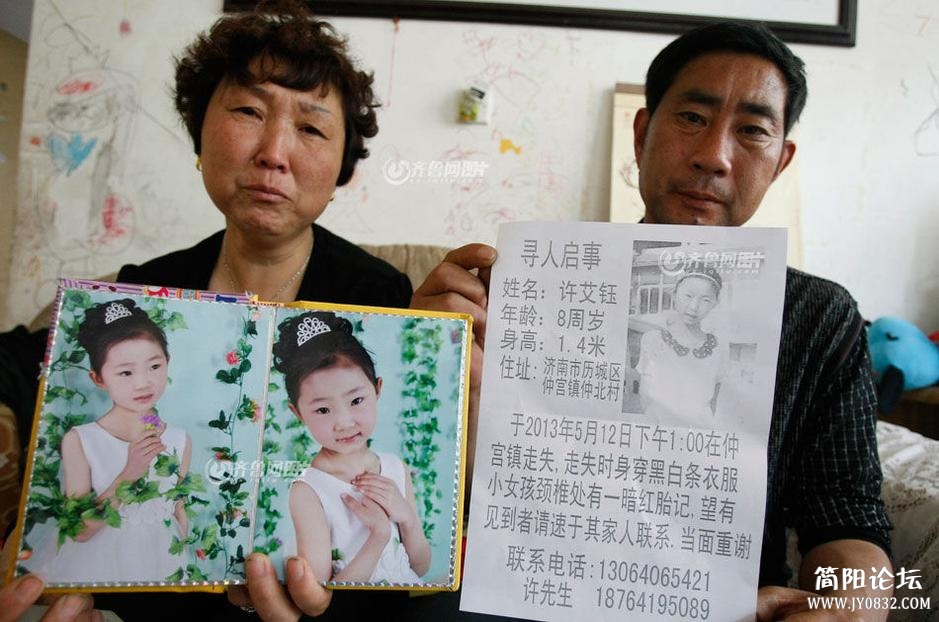 寻人启事
姓名：许艾钰
年龄：8周岁
身高：1.4米
住址：济南市历城区
仲宫镇仲北村
于2013年5月12日下午1:00在仲
宫镇走失,走失时身穿黑白条衣服
小女孩颈椎处有一暗红胎记,望有
见到者请速于其家人联系.当面重谢
联系电话:13064065421
许先生 18764195089
齐鲁网图片
齐鲁网图片
齐鲁网图片
简阳论坛
WWW.JY0832.COM